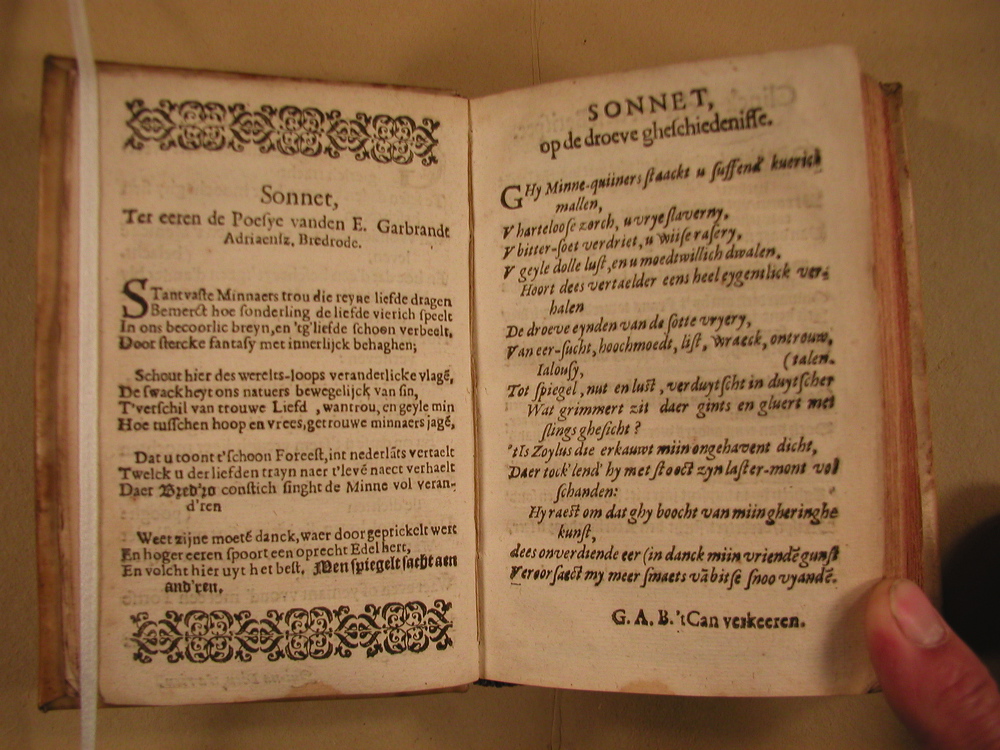 Sonnet,
Ter eeren de Poesye vanden E. Garbrande
Adriaensz, Bredrode.
STantvaste Minnaers trou die reyne liefde dragen
Bemerct hoe sonderling de liefde vierich speelt
In ons becoorlic breyn, en 'tg'liefde schoon verbeelt,
Door stercke fantasy met innerlijck behaghen;
Schout hier des werelts-loops veranderlicke vlagē,
De swackheyt ons natuers bewegelijck van sin,
T'verschil van trouwe Liefd , wantrou, en geyle min
Hoe tusschen hoop en vrees, getrouwe minnaers jagē,
Dat u toont t'schoon Foreest, int nederlāts vertaelt
Twelck u der liefden trayn naer t'levē naect verhaelt
Daer Bred'ro constich singht de Minne vol veran-
d'ren
Weet zijne moetē danck, waer door geprickelt wert
En hoger eeren spoort een oprecht Edel hert,
En volcht hier uyt het best. Men spiegelt sacht aen
and'ren.
SONNET,
op de droeve gheschiedenisse.
GHy Minne-quiiners staackt u suffend kuerich
mallen,
V harteloose zorch, u vrye slaverny,
V bitter-soet verdriet, u wiise rasery,
V geyle dolle lust, en u moedtwillich dwalen.
Hoort dees vertaelder eens heel eygentlick ver-
halen
De droeve eynden van de sotte vryery,
Van eer-sucht, hoochmoedt, list, wraeck, ontrouw,
Ialousy, (talen.
Tot spiegel, nut en lust, verduytscht in duytscher
Wat grimmert zit daer gints en gluert met
slings ghesicht ?
'tIs Zoylus die erkauwt miin ongehavent dicht,
Daer tock'lend' hy met stoect zyn laster-mont vol
schanden:
Hy raest om dat ghy boocht van miin gheringhe
kunst,
dees onverdiende eer (in danck miin vriendē gunst
Veroorsaect my meer smaets vā bitse snoo vyandē.
G. A. B. 't Can verkeeren.